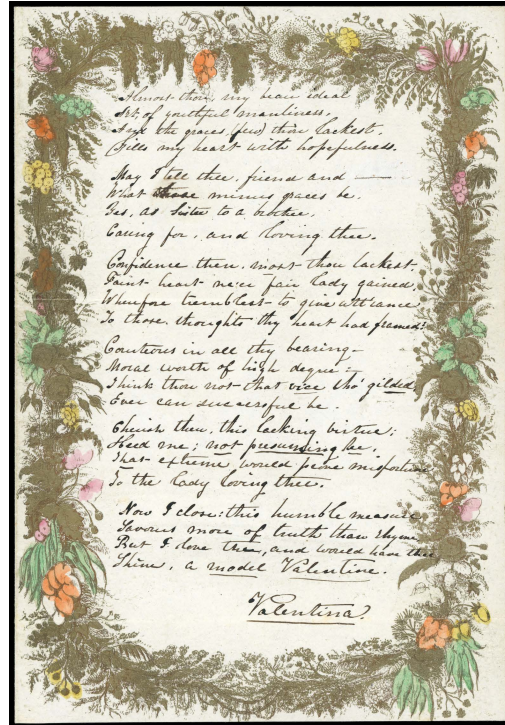 Almost thou, my beau ideal
Art of youthful manliness,
And the graces (few) thou lackest,
Fills my heart with hopefulness.
May I tell thee, friend and ——
What those minus graces be.
Yes, as Sister to a brother,
Caring for, and loving thee.
Confidence then, most thou lackest.
Faint heart ne'er fair lady gained,
Wherefore tremblest to give utterance
To those thoughts thy heart had framed?
Courteous in all thy bearing –
Moral worth of high degree –
Think thou not that vice tho' gilded,
Ever can successful be.
Cherish then, this lacking virtue;
Heed me; not presuming be,
That extreme would prove misfortune
To the Lady loving thee.
Now I close: this humble measure
Savours more of truth than rhyme,
But I love thee, and would have thee
Shine, a model Valentine.
Valentina.